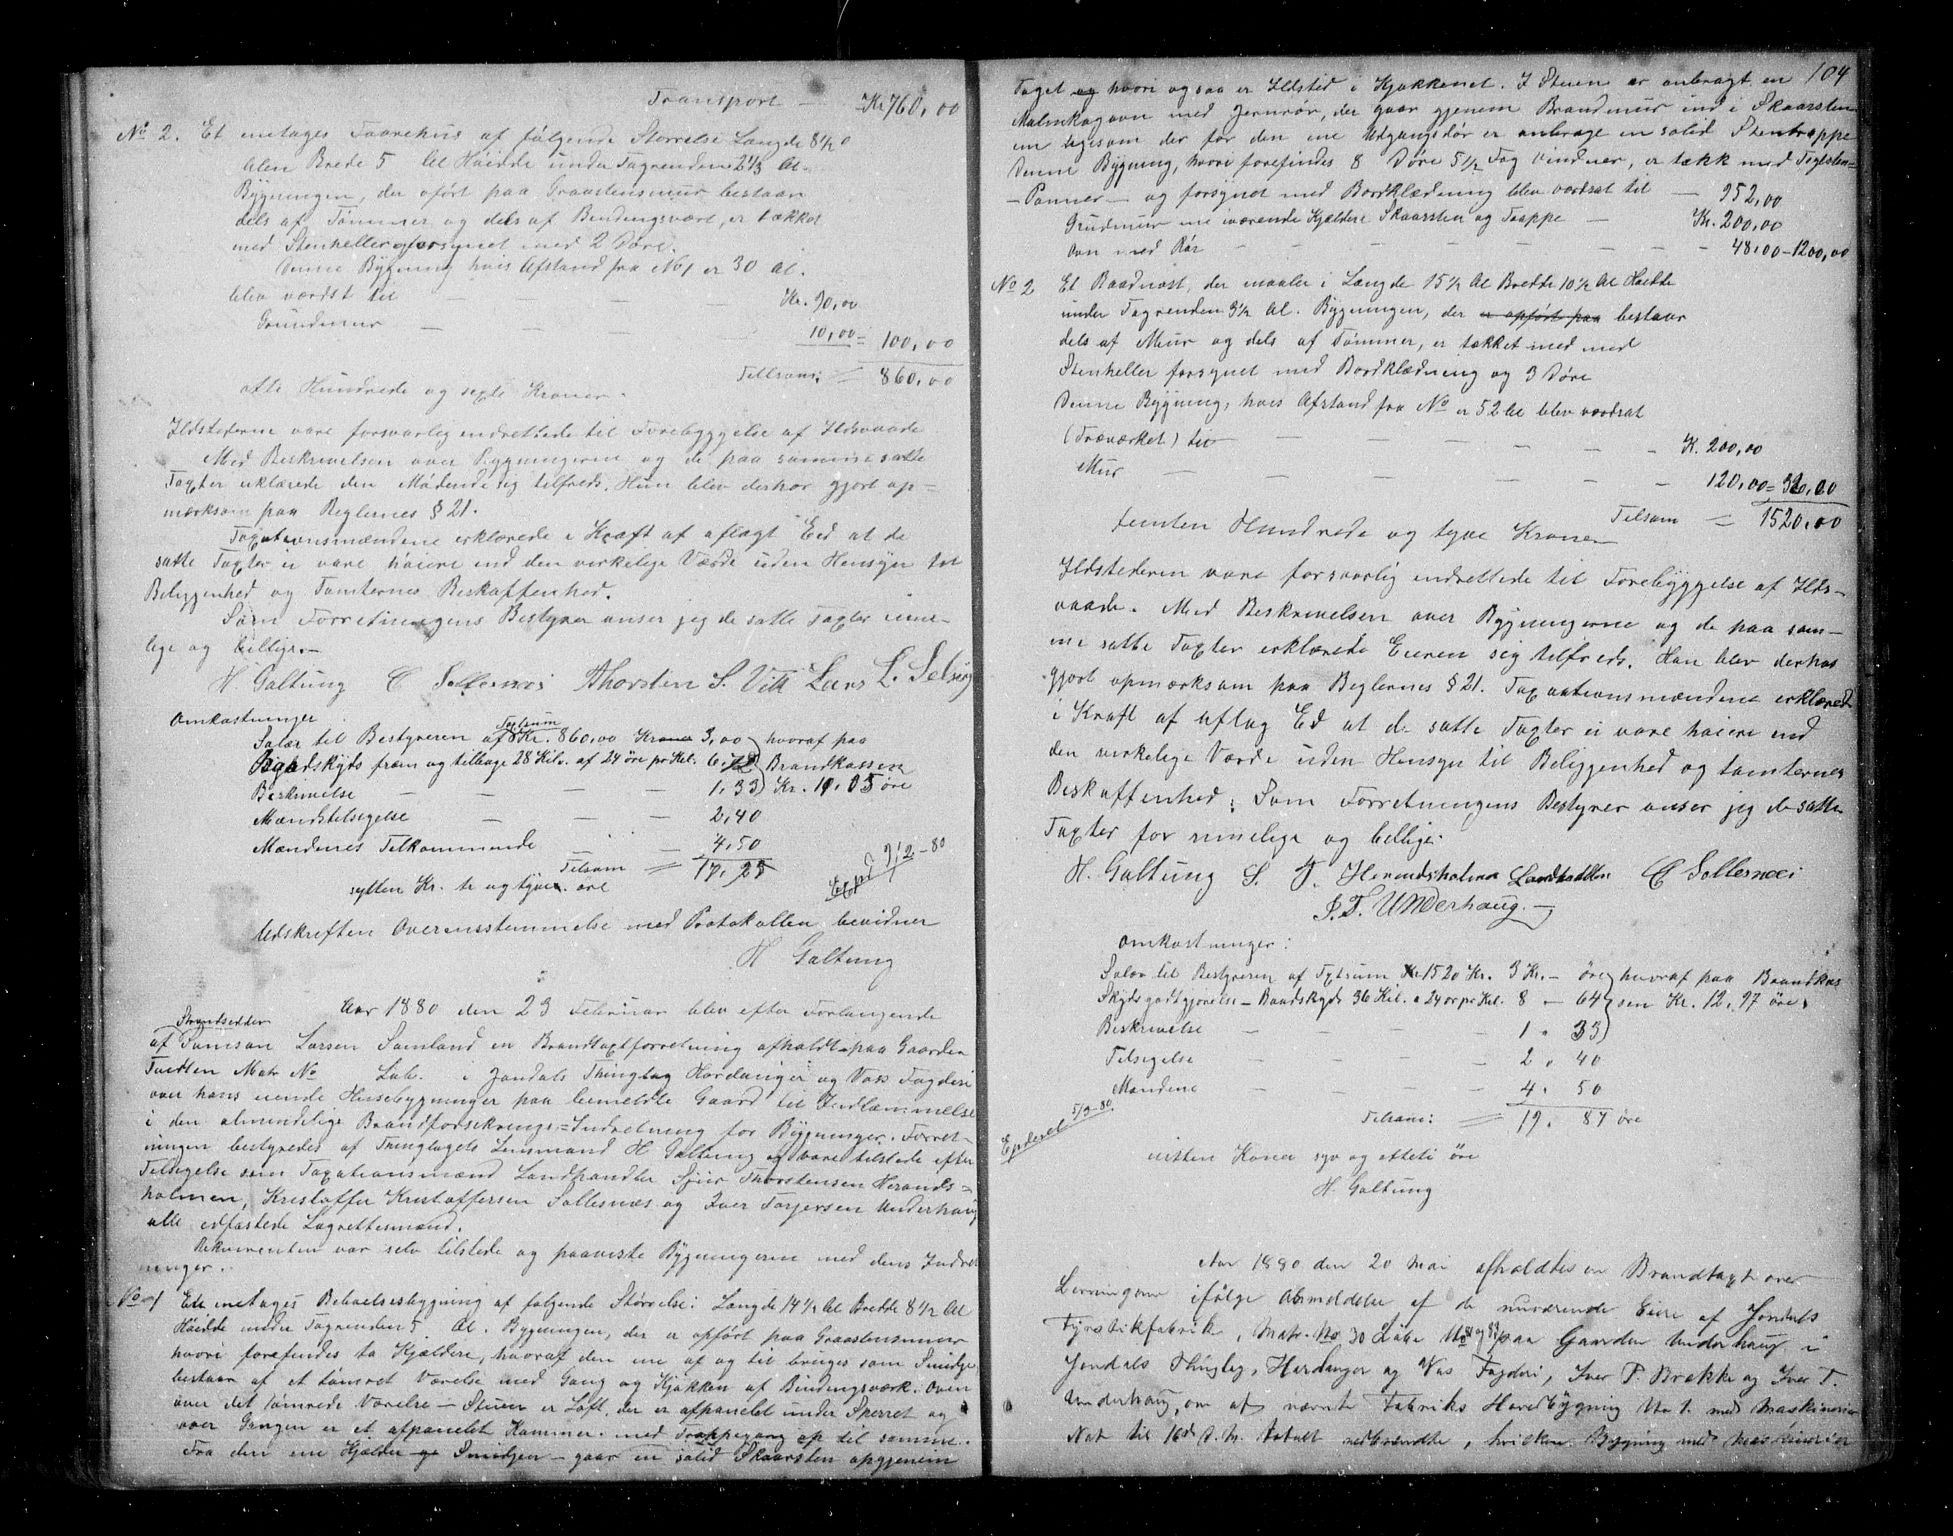 Transport — Kr 760,00
No 2. Et metages Faarehus af følgende Størrelse Længde 8 1/2
Alen Brede 5 Al Høidde under Tagrenden 2 1/3 Al.
Bygningen, der oført paa Graastensmur bestaar
dels af Tømmer og dels af Bindingsværk, er tækket
med Stenheller forsynet med 2 Døre.
Denne Bygning hvis Afstand fra No 1 er 30 Al.
blev værdst til — — — Kr. 90,00
Grundmur — — — 10,00 = 100,00
Tilsam: = 860,00
otte Hundrede og sexti Kroner.
Ildstederne vare forsvarlig indrettede til Forebyggelse af Ildsvaade
Med Beskrivelsen over Bygningerne og de paa samme satte
Taxter erklærede den Mødende sig tilfreds. Hun blev derhos gjort op=
mærksom paa Reglernes § 21.
Taxationsmændene erklærede i Kraft af aflagt Eed at de
satte Taxter ei vare høiere end den virkelige Værde uden Hensyn til
Beliggenhed og Tomternes Beskaffenhed.
Som Forretningens Bestyrer anser jeg de satte Taxter rime-
lige og billige.—
H. Galtung C Sollesnæs Thorsten S. Vik Lars L. Selsvig
Omkostninger
Salær til Bestyreren af Taxtsum Kr. 860,00 Kroner 3,00 hvoraf paa
Baadskyds frem og tilbage 28 Kil. af 24 øre pr Kil. 6,72 Brandkassen
Beskrivelse — — — 1,33 Kr. 11.05 øre
Mændstilsigelse — — 2,40
Mændenes Tilkommende — 4,50
Tilsam = 17,25
sytten Kr. og tyve øre
Exp 9/2-80
Udskriftens Overensstemmelse med Protokollen bevidner
H Galtung
Aar 1880 den 23 Februar blev efter Forlangende
Strandsidder
af Samson Larsen Samland en Brandtaxtforretning afholdt paa Gaarden
Tveiten Matr No Løb. i Jondals Thinglag Hardanger og Voss Fogderi
over hans eiende Huusebygninger paa bemeldte Gaard til Indlemmelse
i den almindelige Brandforsikrings=Indretning for Bygninger. Forret-
ningen bestyredes af Thinglagets Lensmand H Galtung og vare tilstede efter
Tilsigelse som Taxationsmænd Landhandler Sjur Thorstensen Herands=
holmen, Kristoffer Kristoffersen Sollesnæs og Iver Torjersen Underhaug
alle edfæstede Lagrettesmænd.
Rekvirenten var selv tilstede og paaviste Bygningerne med dens Indret
ninger.
No 1 Et etmetages Beboelsesbygning af følgende Størrelse: Længde 14 1/2 Al Bredde 8 1/2 Al
Høidde under Tagrenden 5 Al. Bygningen, der er opført paa Graastensmur
hvori forefindes to Kjældere, hvoraf den ene af og til bruges som Smidje
bestaar af et tømret Værelse med Gang og Kjøkken af Bindingsværk. Oven
over det tømrede Værelse — Stuen er Loft, der er afpanelet under Sperret og
over Gangen er et afpanelet Kammer med Trappegang op til samme.
Fra den ene Kjælder og Smidjen — gaar en solid Skaarsten opgjenem
104
Taget og hvori ogsaa er Ildsted i Kjøkkenet. I Stuen er anbragt en
Malmkogovn med Jernrør, der gaar gjenem Brandmur ind i Skaarsten
en ligesom der for den ene Udgangsdør er anbragt en solid Stentrappe
Denne Bygning, hvori forefindes 8 Døre 5 1/2 Fag Vinduer, er tækk med Taglsten=
— Panner — og forsynet med Bordklædning blev værdsat til — 952,00
Grundmur me iværende Kjældere Skaarsten og Trappe — Kr. 200,00
Ovn med Rør — — — — 48,00 — 1200,00
No 2 Et Baadnøst, der maaler i Længde 15 1/2 Al Bredde 10 1/2 Al Høidde
under Tagrenden 3 1/2 Al. Bygningen, der er opført paa bestaar
dels af Muur og dels af Tømmer, er tækket med med
Stenheller forsynet med Bordklædning og 3 Døre
Denne Bygning, hvis Afstand fra No er 52 Al blev værdsat
(Træværket) til — — — — K. 200,00
Mur — — — — 120,00 = 320,00
Tilsam = 1520,00
femten Hundrede og tyve Kroner
Ildstederen vare forsvarlig indrettede til Forebyggelse af Ilds-
vaade. Med Beskrivelsen over Bygningerne og de paa sam-
me satte Taxter erklærede Eieren sig tilfreds. Han blev derhos
gjort opmærksom paa Reglernes § 21. Taxationsmændene erklæred
i Kraft af aflag Ed at de satte Taxter ei vare høiere end
den virkelige Værde uden Hensyn til Beliggenhed og tomternes
Beskaffenhed; Som Forretningens Bestyrer anser jeg de satte
Taxter for rimelige og billige.
H. Galtung S. T. Herandsholmen Landhandler C Sollesnæs
I. T. Underhaug.—
Omkostninger:
Salær til Bestyreren af Taxtsum Kr 1520 Kr. 3 Kr. — øre hvoraf paa Brandkas
Skydsgodtgjørelse — Baadskyds 36 Kil. a 24 ør pr Kil. 8 — 64 sen Kr. 12,97 øre
Beskrivelse — — — 1 " 33
Tilsigelse — — — 2 " 40
Mændene — — — 4. 50
Tilsam: = 19. 87 øre
Expederet 5/3-80
nitten Kroner syv og otteti øre
H. Galtung
Aar 1880 den 20 Mai afholdtes en Brandtaxt over
Levningerne ifølge Anmeldelse af de nuværende Eiere af Jondals
Fyrstikfabrik, Matr. No 30 Løbe No paa Gaarden Underhaug i
Jondals Thinglag, Hardanger og Vos Fogderi, Iver P. Brække og Iver T.
Underhaug, om at nævnte Fabriks Hovedbygning No 1. med Maskinerier
Nat til 16de d. M. totalt nedbrændte, hvilken Bygning med Maskinerier